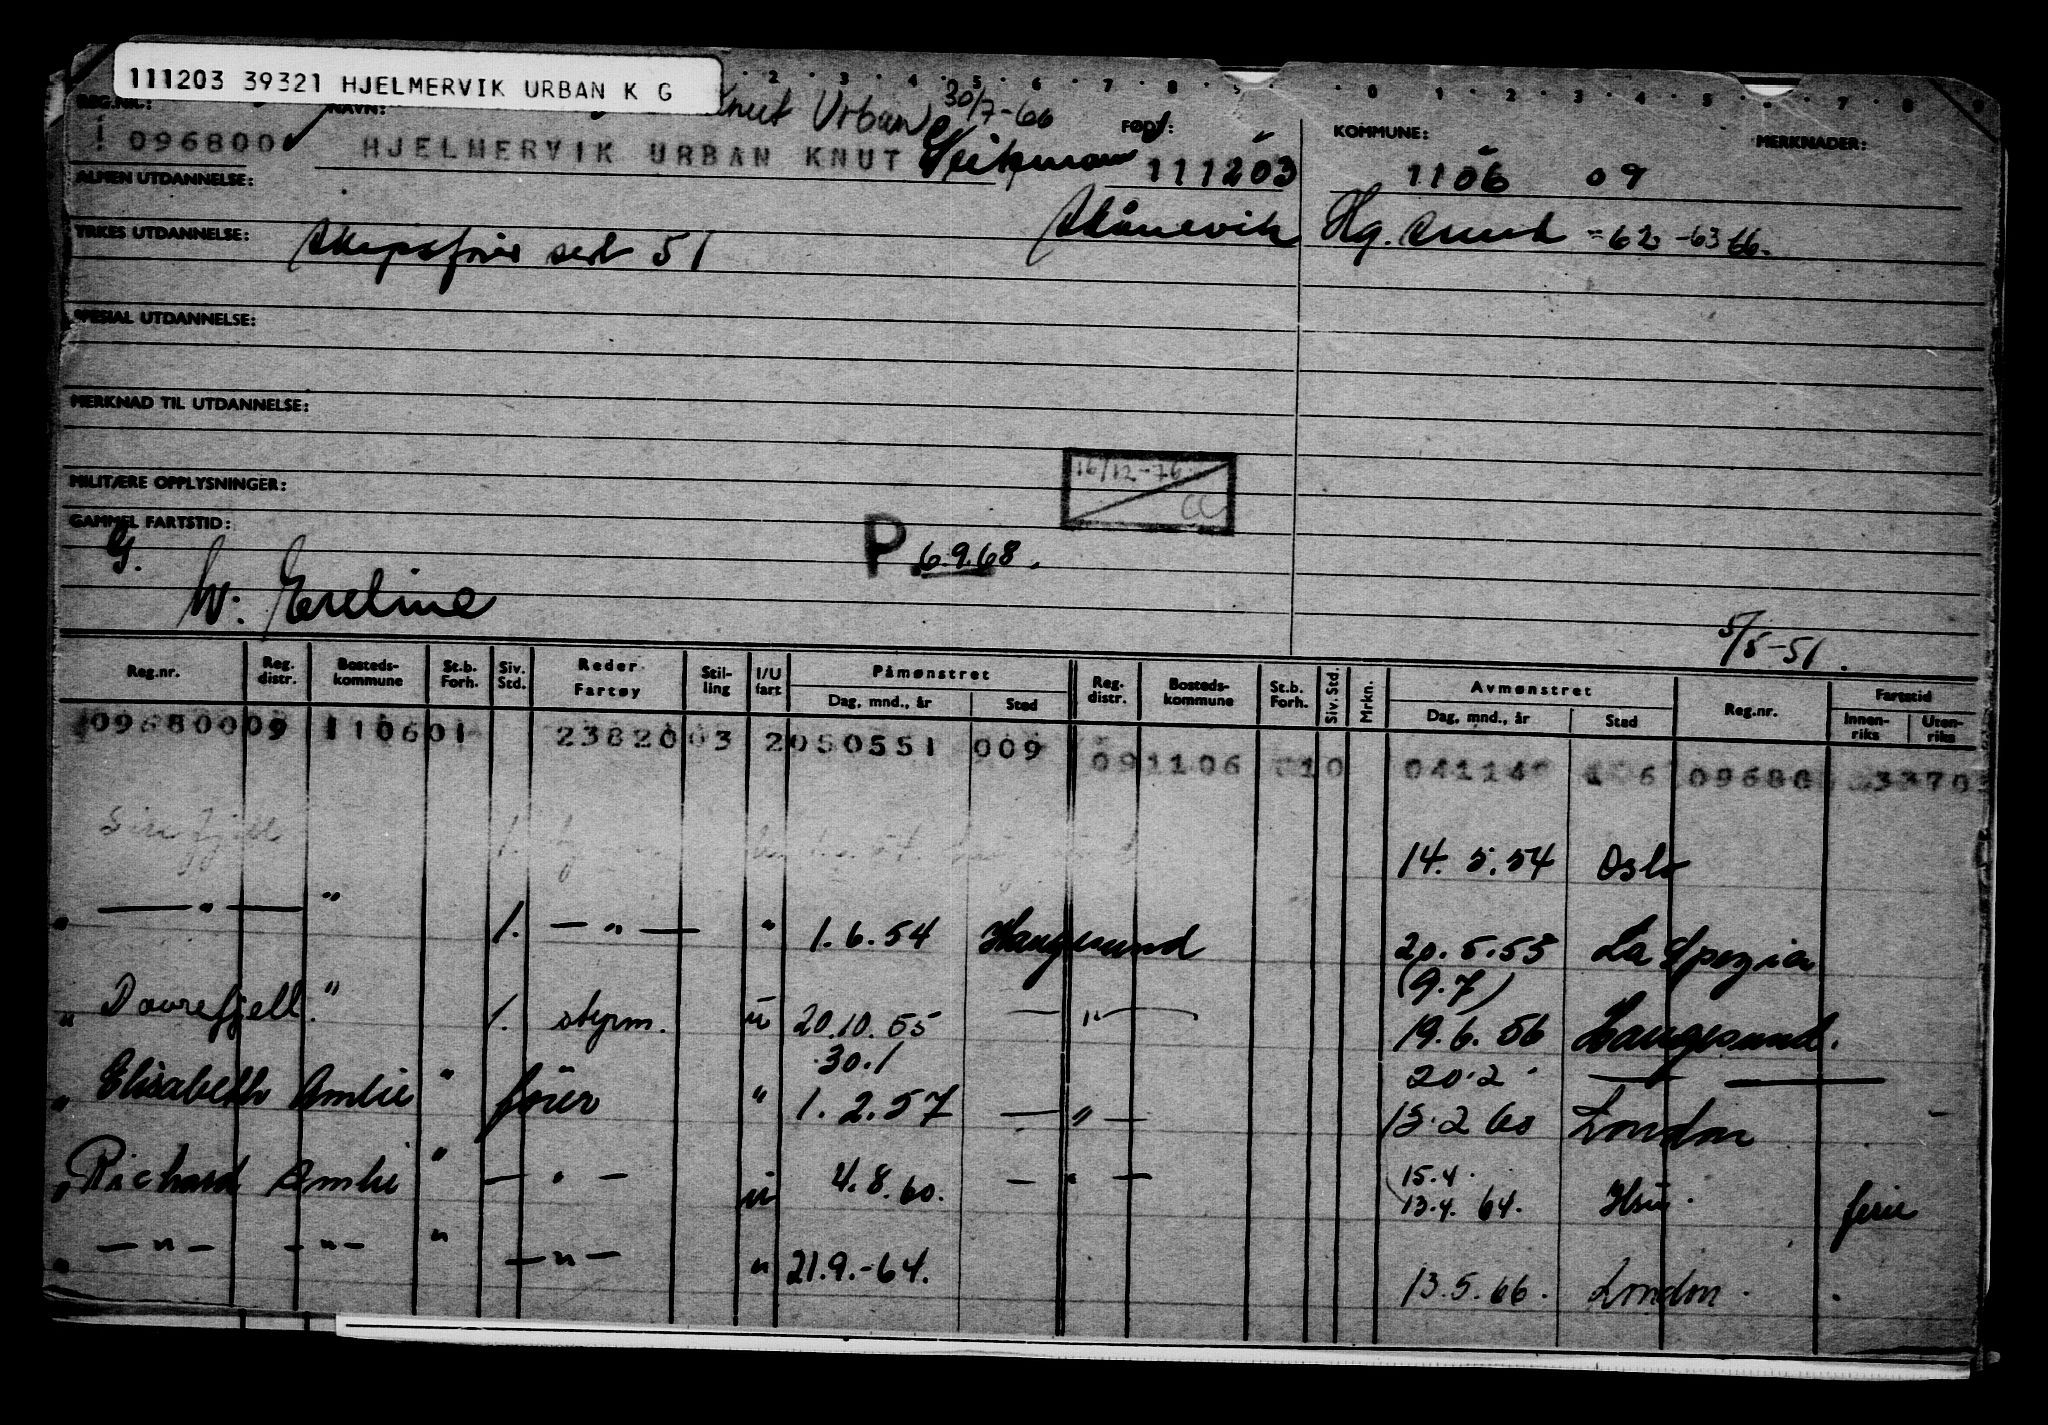 111203 39321 HJELMERVIK URBAN K G
2 3 4 5 6 7 8 9 0 1 2 3 4 5 7 8 9
REG.NR.: NAVN: Knut Urban 30/7-66 FØDT: KOMMUNE: MERKNADER:
096800 HJELMERVIK URBAN KNUT 111203 1106 09
ALMEN UTDANNELSE:
Skånevik Hg. sund -62 -63 66.
YRKES UTDANNELSE: Skipsfører sert 51
SPESIAL UTDANNELSE:
MERKNAD TIL UTDANNELSE:
16/12-76
CC
MILITÆRE OPPLYSNINGER:
GAMMEL FARTSTID:
G. P. 6.9.68.
W: Eveline
5/5-51.
Reg.nr. Reg. distr. Bosteds-kommune St.b. Forh. Siv. Std. Reder Fartøy Stil-ling I/U fart Påmønstret Dag, mnd., år Sted Reg. distr. Bosteds-kommune St.b. Forh. Siv. Std. Mrkn. Avmønstret Dag, mnd., år Sted Reg.nr. Fartstid Innen-riks Uten-riks
096800 09 1106 01 23820 03 2 050551 009 09 1106 10 09680 3370
14.5.54 Oslo
— " — " 1. — " — " 1.6.54 Haugesund 20.5.55 La Spezia
(9.7)
" Dovrefjell. " 1. styrm. u 20.10.55 — " — 19.6.56 Langesund.
30.1 20.2 — —
" Elisabeth Amlie " fører " 1.2.57 — " — 15.2 60 London
15.4.
" Richard Amlie " — " — u 4.8.60. — " — 13.4.64. Hsu. ferie
" — " — — " — " — " — " 21.9.-64. 13.5.66. London.